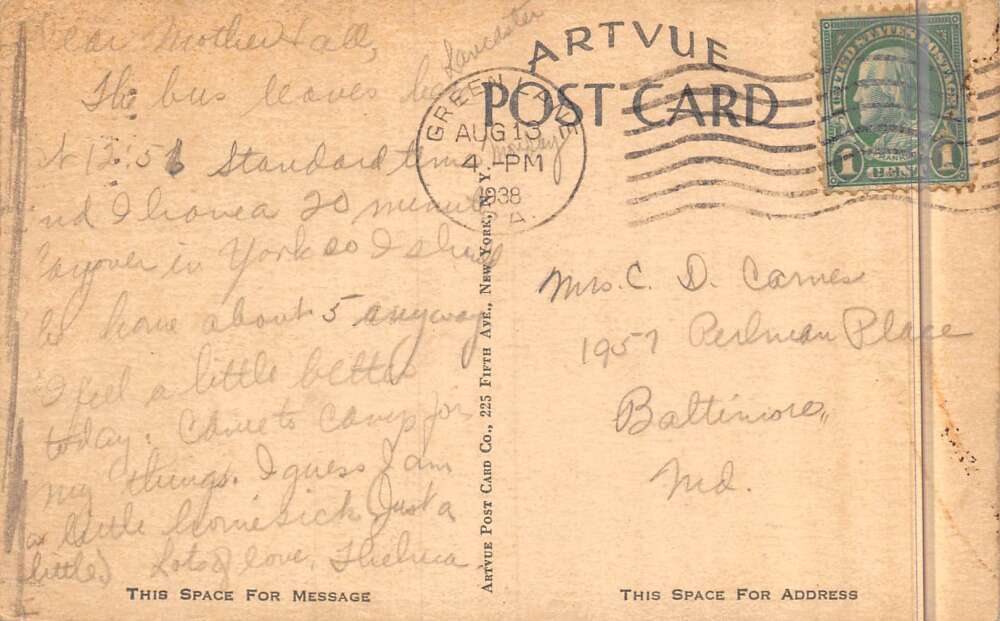 Dear Mother & all,
The bus leaves here Lancaster
At 12.51 Standard time Monday
and I have a 20 minute
layover in York so I should
be home about 5 anyway
I feel a little better
today. Came to camp for
my things. I guess I am
a little homesick (Just a
little.) Lots of love, Thelma.
THIS SPACE FOR MESSAGE
ARTVUE
POST CARD
GREEN LANE
AUG 13
4 - PM
1938
PA.
UNITED STATES POSTAGE
FRANKLIN
1 CENT 1
ARTVUE POST CARD CO., 225 FIFTH AVE., NEW YORK, N. Y.
Mrs. C. D. Carnes
1957 Perlman Place
Baltimore,
Md.
THIS SPACE FOR ADDRESS